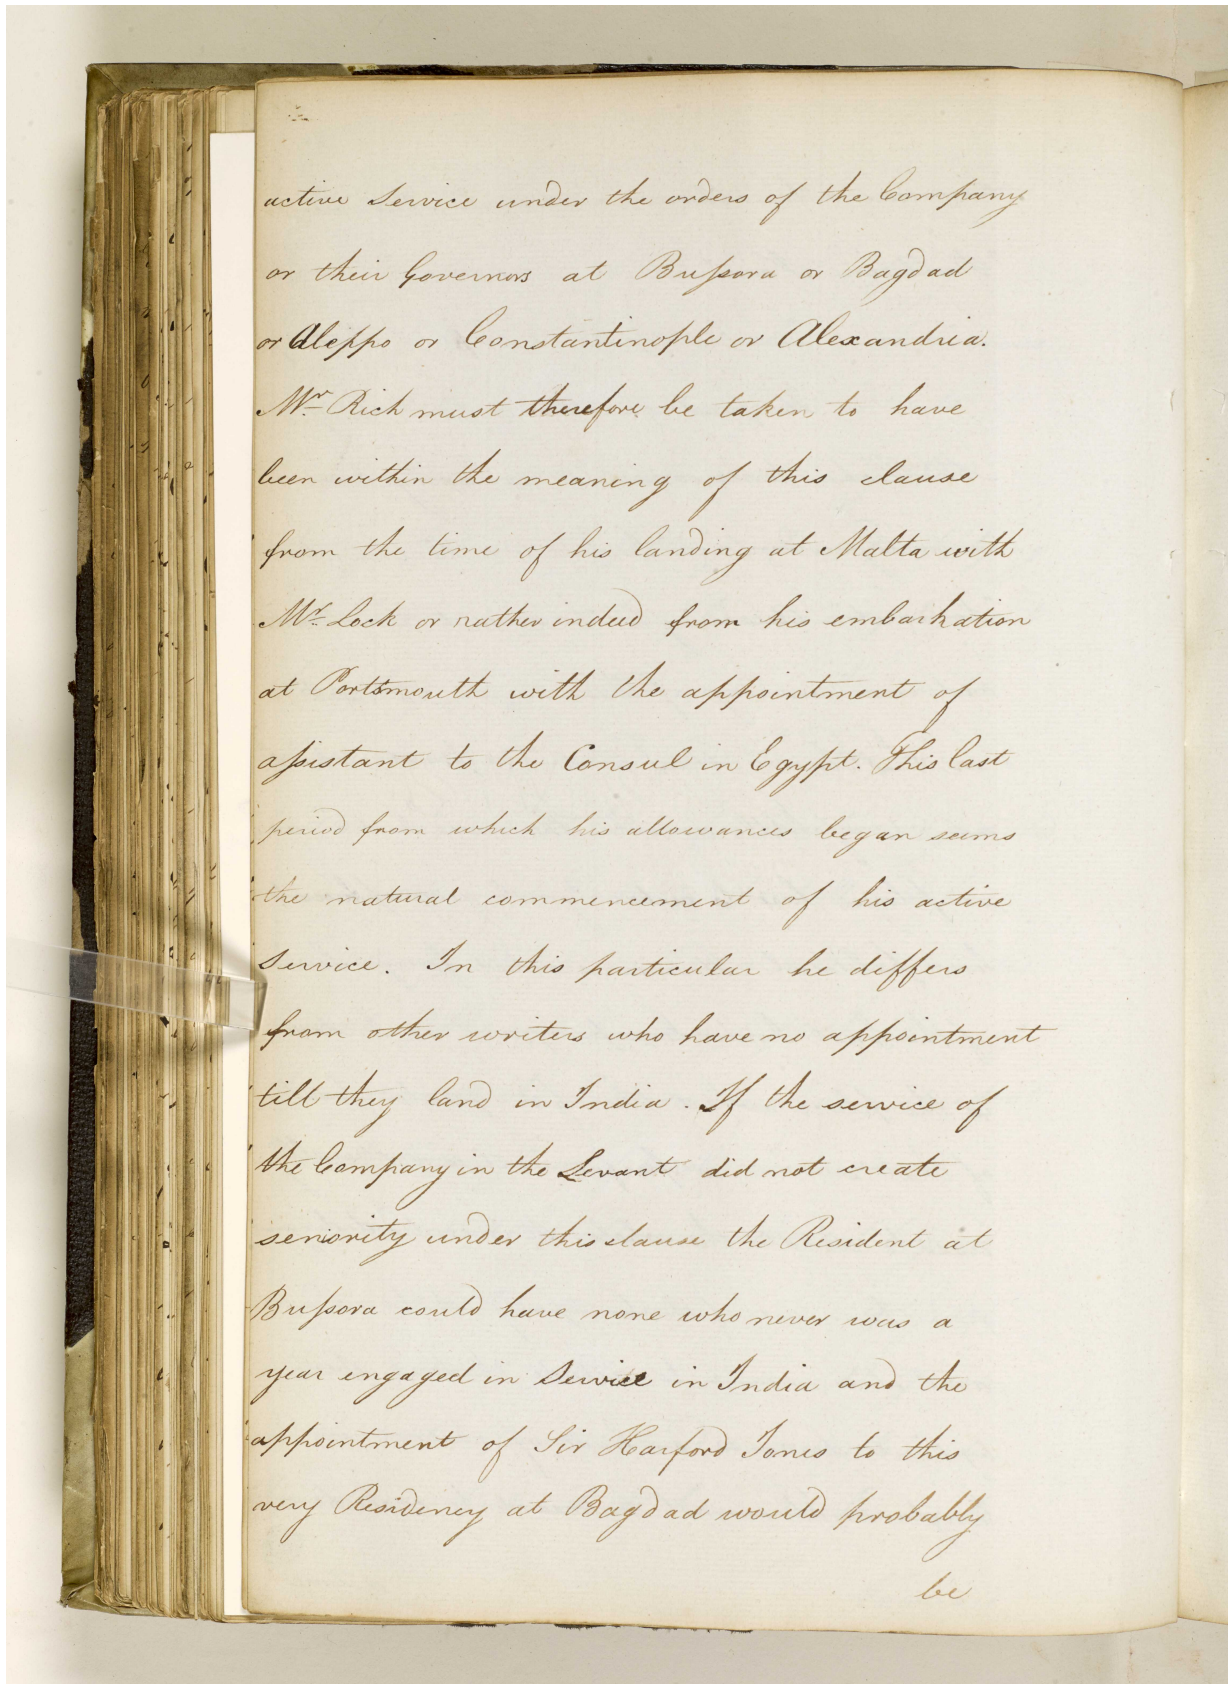 active Service under the orders of the Company
or their Governors at Bussora or Bagdad
or Aleppo or Constantinople or Alexandria.
Mr. Rich must therefore be taken to have
been within the meaning of this clause
from the time of his landing at Malta with
Mr. Lock or rather indeed from his embarkation
at Portsmouth with the appointment of
assistant to the Consul in Egypt. This last
period from which his allowances began seems
the natural commencement of his active
Service. In this particular he differs
from other writers who have no appointment
till they land in India. If the service of
the Company in the Levant did not create
seniority under this clause the Resident at
Bussora could have none who never was a
year engaged in Service in India and the
appointment of Sir Harford Jones to this
very Residency at Bagdad would probably
be